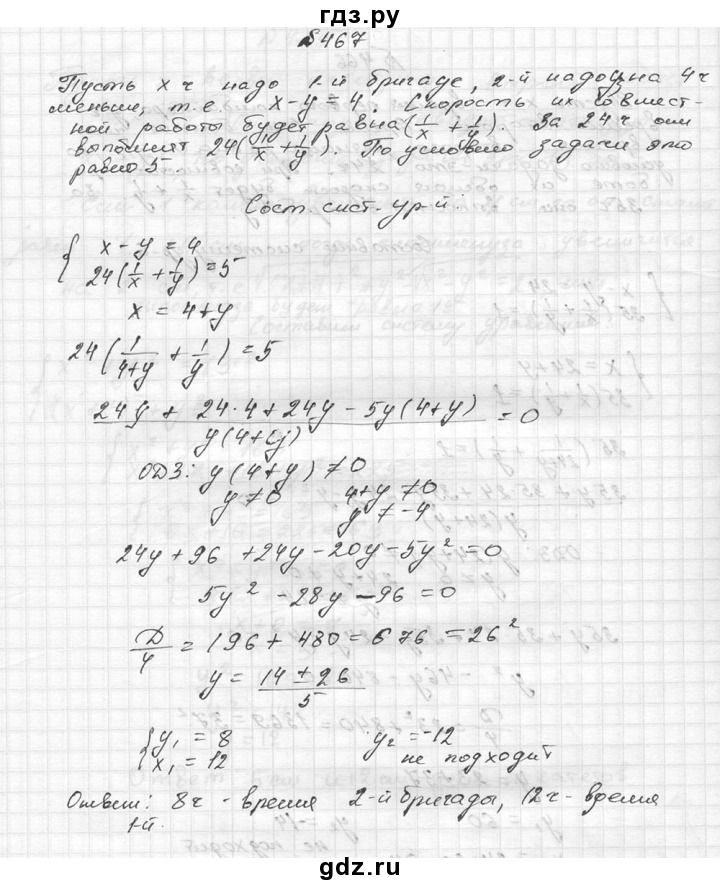 гдз.ру
№467
Пусть х ч надо 1-й бригаде, 2-й надо у на 4ч
меньше, т.е. x-y=4. Скорость их совмест-
ной работы будет равна (1/x + 1/y). За 24 ч они
выполнят 24(1/x + 1/y). По условию задачи это
равно 5.
Сост. сист. ур-й:
{ x-y=4
24(1/x + 1/y)=5
x = 4+y
24(1/(4+y) + 1/y)=5
(24y + 24·4+24y - 5y(4+y))/(y(4+y)) = 0
ОДЗ: y(4+y) ≠0
y≠0 4+y ≠0
y ≠ -4
24y+96 +24y-20y-5y²=0
5y² -28y -96=0
D/4 = 196+480=676=26²
y= (14±26)/5
{ y₁ = 8 y₂=-12
x₁ = 12 не подходит
Ответ: 8ч - время 2-й бригады, 12ч-время
1-й.
gdz.ru